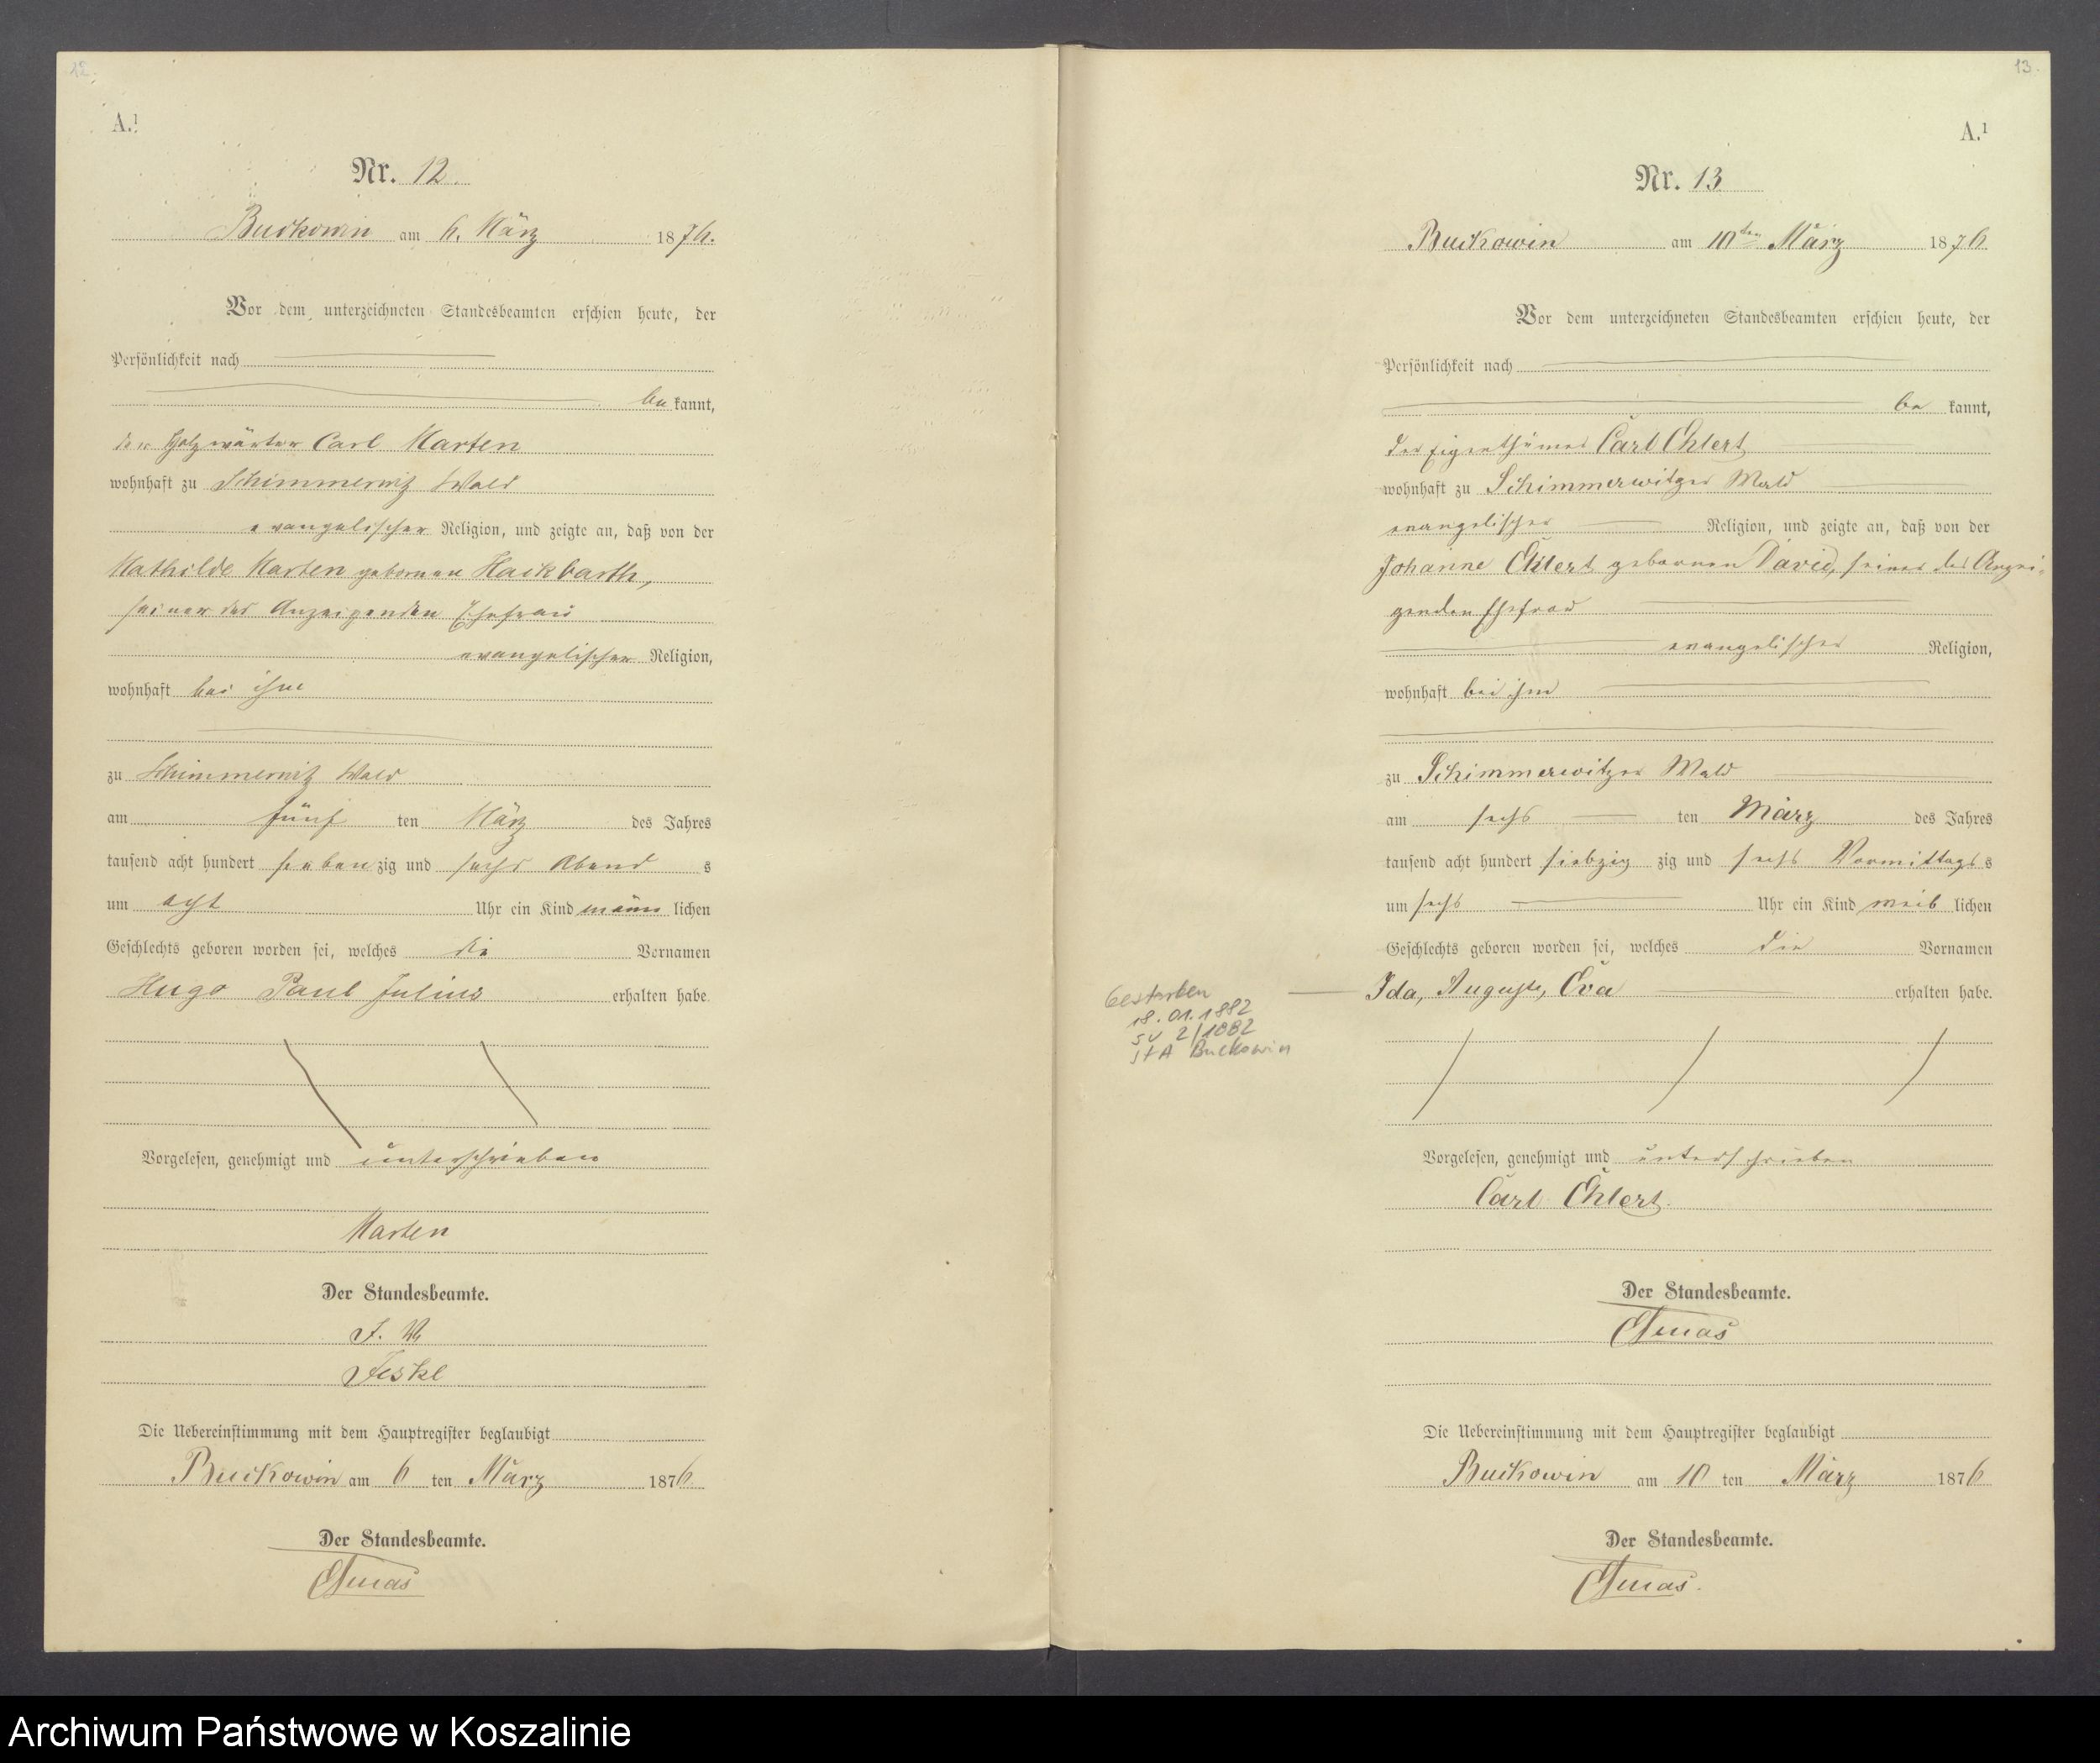 12.
A.¹
Nr. 12.
Buckowin am 6. März 1876.
Vor dem unterzeichneten Standesbeamten erschien heute, der
Persönlichkeit nach
be kannt,
der Holzwärter Carl Marten
wohnhaft zu Schimmerwitz Wald
evangelischer Religion, und zeigte an, daß von der
Mathilde Marten gebornen Hackbarth,
seiner des Anzeigenden Ehefrau
evangelischer Religion,
wohnhaft bei ihm
zu Schimmerwitz Wald
am fünf ten März des Jahres
tausend acht hundert sieben zig und sechs Abend s
um acht Uhr ein Kind männ lichen
Geschlechts geboren worden sei, welches die Vornamen
Hugo Paul Julius erhalten habe.
Vorgelesen, genehmigt und unterschrieben
Marten
Der Standesbeamte.
J. V.
Jeske
Die Uebereinstimmung mit dem Hauptregister beglaubigt
Buckowin am 6 ten März 1876
Der Standesbeamte.
13.
A.¹
Nr. 13
Buckowin am 10ten März 1876
Vor dem unterzeichneten Standesbeamten erschien heute, der
Persönlichkeit nach
be kannt,
der Eigenthümer Carl Ehlert
wohnhaft zu Schimmerwitzer Wald
evangelischer Religion, und zeigte an, daß von der
Johanne Ehlert gebornen David, seiner des Anzei-
genden Ehefrau
evangelischer Religion,
wohnhaft bei ihm
zu Schimmerwitzer Wald
am sechs ten März des Jahres
tausend acht hundert siebzig zig und sechs Vormittags s
um sechs Uhr ein Kind weib lichen
Geschlechts geboren worden sei, welches die Vornamen
Ida, Auguste, Eva erhalten habe.
Gestorben
18.01.1882
SU 2/1882
StA Buckowin
Vorgelesen, genehmigt und unterschrieben
Carl Ehlert.
Der Standesbeamte.
Die Uebereinstimmung mit dem Hauptregister beglaubigt
Buckowin am 10 ten März 1876
Der Standesbeamte.
Archiwum Państwowe w Koszalinie